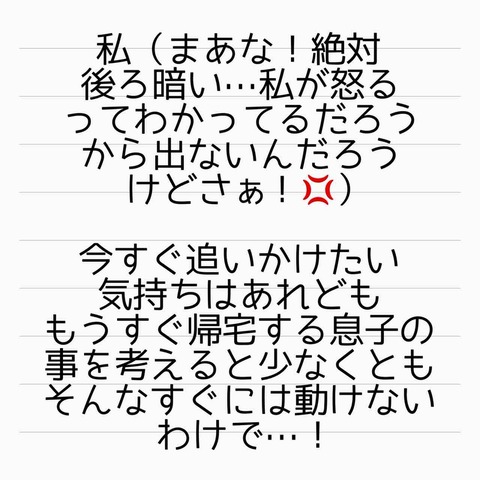 私（まあな！絶対
後ろ暗い…私が怒る
ってわかってるだろう
から出ないんだろう
けどさぁ！💢）
今すぐ追いかけたい
気持ちはあれども
もうすぐ帰宅する息子の
事を考えると少なくとも
そんなすぐには動けない
わけで…！